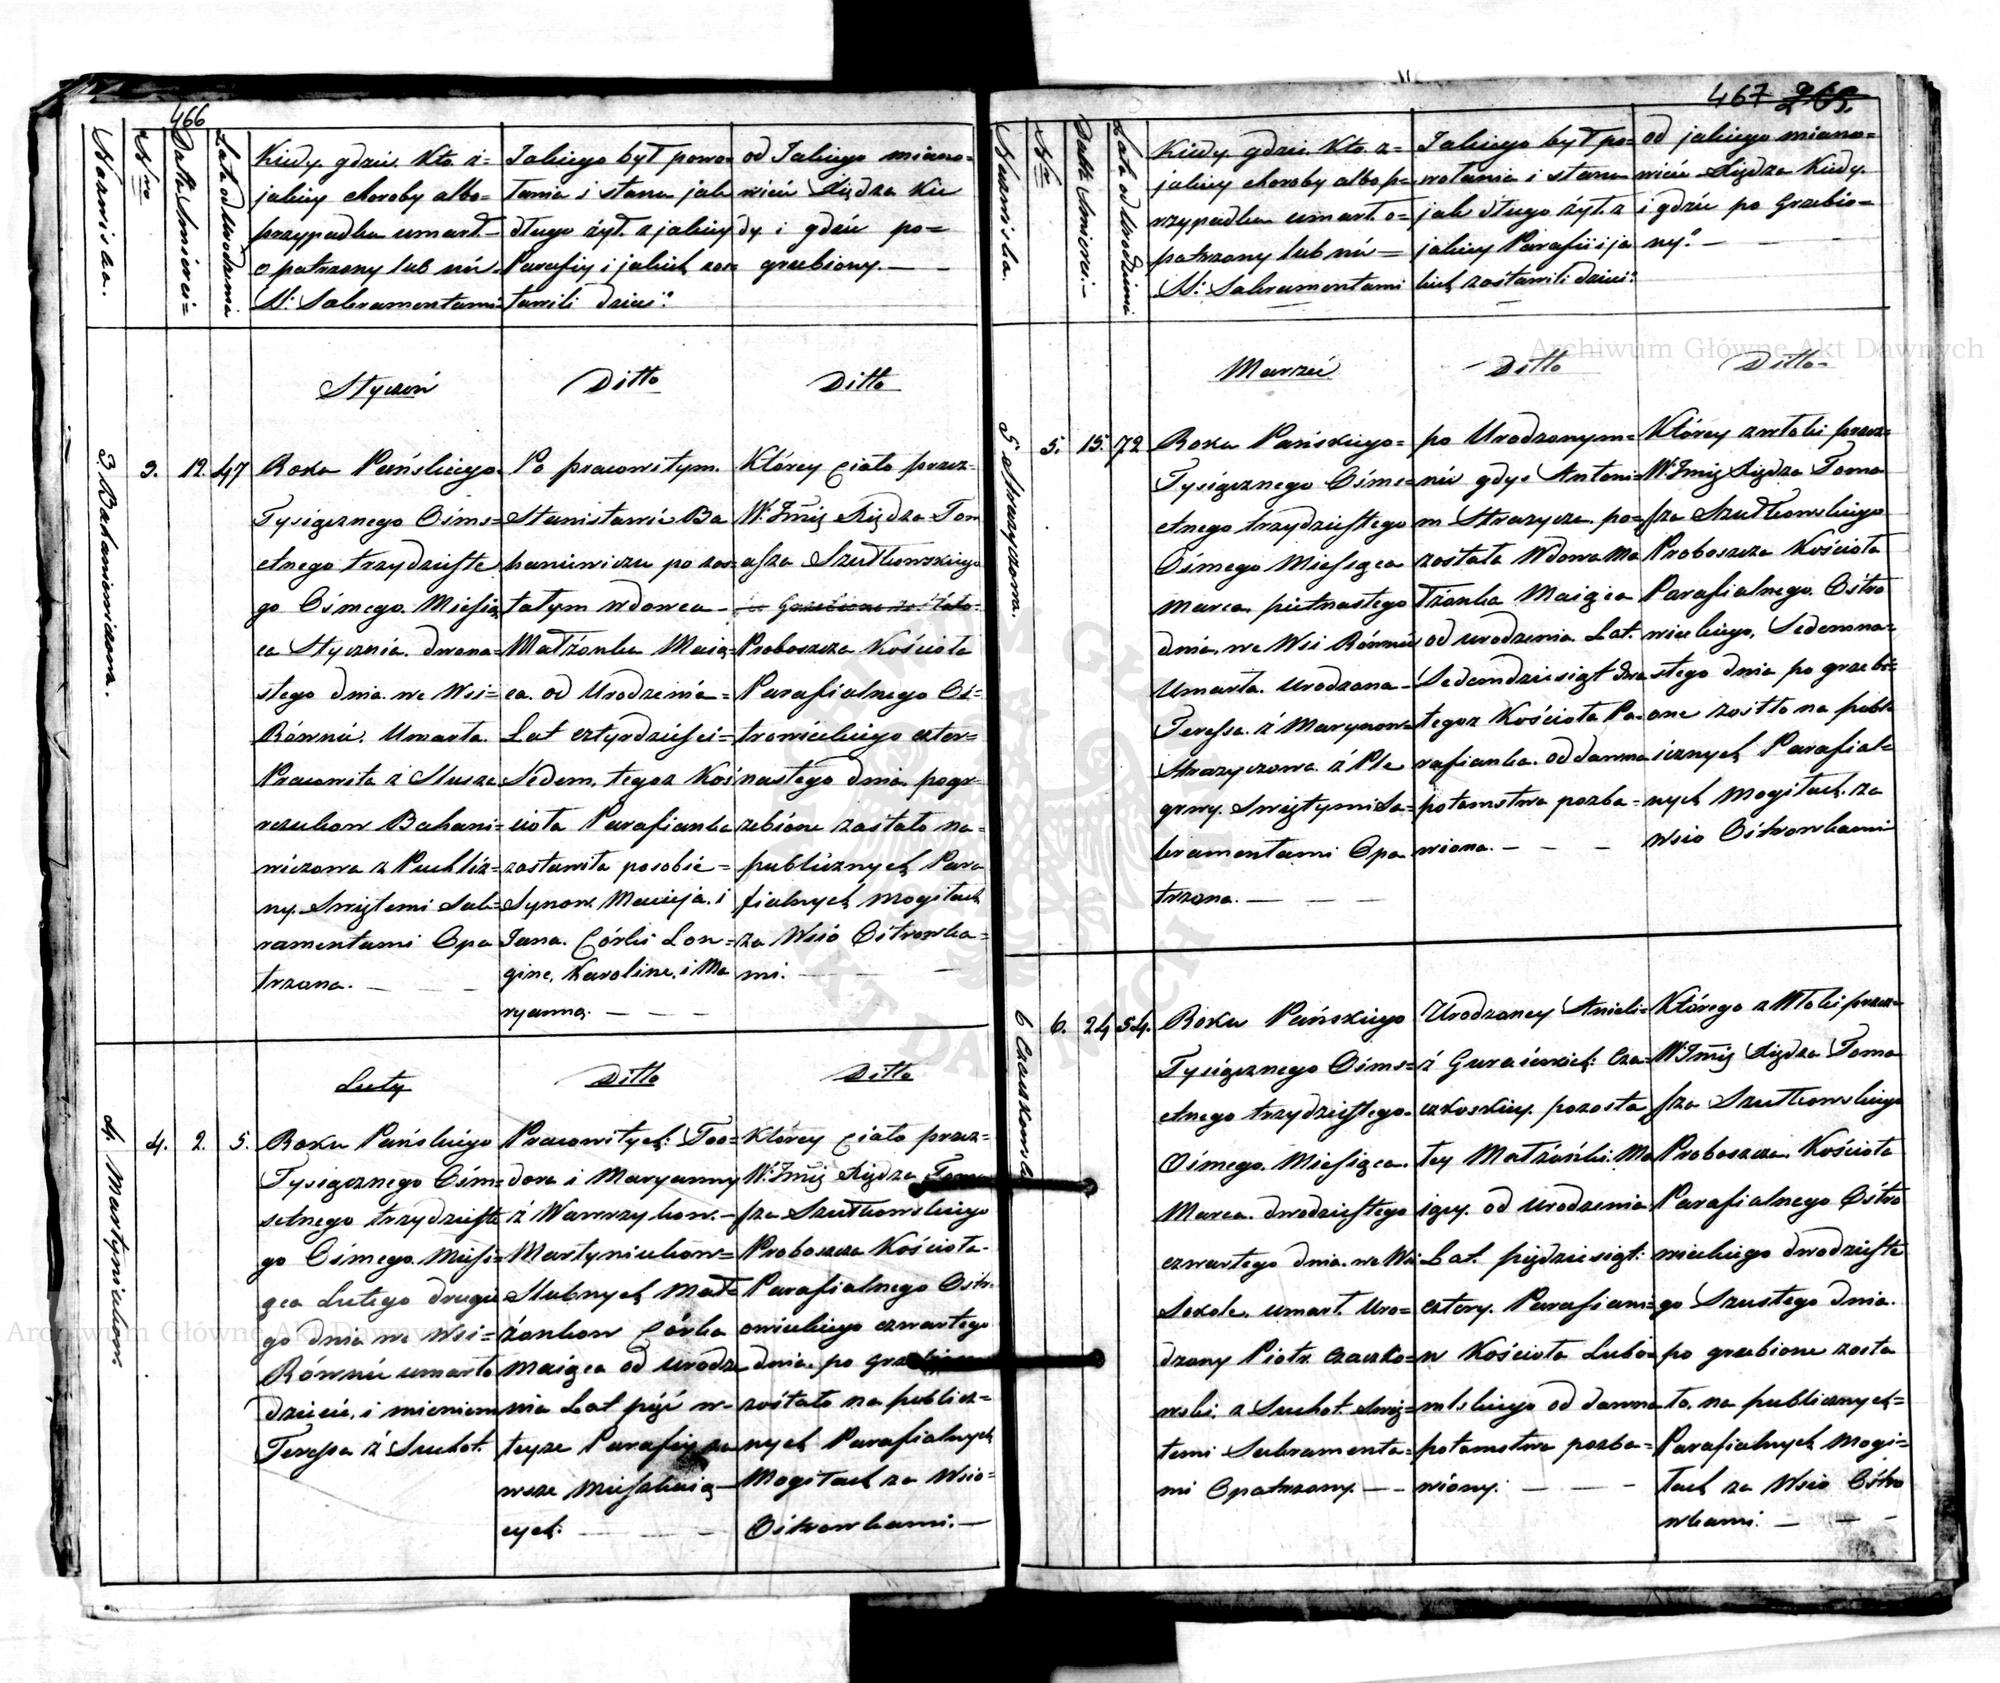 466
Nazwiska.
Nro
Datta Smierci=
Lata od Urodzenia
Kiedy, gdzie, Kto, z=
jakiey choroby albo=
przypadku umarł.=
opatrzony lub nie.
SS: Sakramentami
Jakiego był powo=
łania i stanu jak
długo żył. z jakiey
Parafiy i jakich zos=
tawili dzieci?
od Jakiego miano=
wicie Xiędza Kie
dy i gdzie po=
grzebiony. —
Styczeń
Ditto
Ditto
3. Bahaniewiczowa.
3.
12.
47
Roku Pańskiego.
Tysięcznego Ośms=
etnego trzydziste
go Ośmego. Miesią
ca Stycznia. dwuna=
stego dnia. we Wsi=
Równie. Umarła.
Pracowita z Slusza
reczukow Bahani=
wiczowa z Puchliz=
ny. Swiętemi Sak=
ramentami Opa
trzona. — — —
Po pracowitym.
Stanisławie Ba
haniewiczu po zos=
tałym wdowca —
Małżonka Maią=
ca. od Urodzenia=
Lat cztyrdzieści=
Siedem, tegoz Koś
cioła Parafianka
zostawiła posobie=
Synow. Macieja. i
Jana. Córki Lon=
gine, Karoline, i Ma
ryanną. — — —
Którey Ciało przez=
W. Jmię Xiędza Tom
asza Szutkowskiego
Proboszcza Kościoła
Parafialnego Os=
trowieckiego czter=
nastego dnia. pogr=
zebione zostało na=
publicznych Para
fialnych mogiłach
za Wsió Ostrowka=
mi. — — —
Luty
Ditto
Ditto
4. Martyniukow.
4.
2.
5.
Roku Pańskiego
Tysięcznego Ośm=
setnego trzydzieste
go Ośmego. Miesi=
ąca Lutego drugie
go dnia we Wsi=
Równie umarło
dziecie, i mieniem
Teressa z Suchot.
Pracowitych: Teo=
dora i Maryanny
z Wawrzykow. —
Martyniukow=
Slubnych Mał=
żonkow Córka
maiąca od urodze
nia Lat pięć w=
teyze Parafiy za
wsze Mieszkaią=
cych: — — —
Którey Ciało przez=
W. Jmię Xiędza Toma
sza Szutkowskiego
Proboszcza Kościoła.
Parafialnego Ostr.
owieckiego czwartego
dnia. po grzebione
zostało na publicz=
nych Parafialnych
Mogiłach za Wsio=
Ostrowkami. —
467
Nazwiska.
Nro
Datta Smierci. —
Lata od Urodzenia
Kiedy, gdzie, Kto z=
jakiey choroby albo p=
rzypadku umarł. o=
patrzony lub nie=
SS: Sakramentami
Jakiego był po=
wołania i stanu
jak długo żył. z
jakiey Parafii i ja
kich zostawili dzieci?
od jakiego miano=
wicie Xiędza Kiedy.
i gdzie po Grzebio=
ny? — — —
Marzec
Ditto
Ditto
5 Strazyczowa.
5.
15.
72
Roku Pańskiego=
Tysięcznego Ośms=
etnego trzydziestego
Ośmego Miesięca
Marca. pietnastego
dnia. we Wsi Równie
Umarła. Urodzona—
Teressa. z Marynow=
Strazyczowa. z Ple
grwy. Swiętymi Sa=
kramentami Opa
trzona. — — —
po Urodzonym=
nie gdys Antoni=
m Strazycza. po=
została Wdowa Ma
łżonka Maiąca
od urodzenia. Lat.
Siedemdziesiąt dwa
tegoz Kościoła Pa=
rafianka. od dawna
potomstwa pozba=
wiona. — — —
Którey zwłoki przez=
W. Jmię Xiędza Toma
sza Szutkowskiego
Proboszcza Kościoła
Parafialnego. Ostro
wieckiego, Siedemna=
stego dnia po grzebi=
one zostło na publi
icznych Parafial=
nych Mogiłach. za
Wsio Ostrowkami
6 Czaczkowski
6.
24
54.
Roku Pańskiego
Tysięcznego Ośms=
etnego trzydziestego.
Ośmego. Miesięca.
Marca. dwodziestego
czwartego dnia. we Wsi
Sokole. umarł. Uro=
dzony Piotr. Czaczko=
wski. z Suchot. Swię=
temi Sakramenta=
mi Opatrzony. — —
Urodzoney Anieli=
z Guraieskich: Cza=
czkoskiey. pozosta
łey Małżónki: Ma
iącey. od Urodzenia
Lat. pięździesiąt:
cztery. Parafiani=
n Kościoła Lubo=
mlskiego od dawna
potomstwa pozba=
wióny. — — —
Którego zwłoki przez=
W. Jmię Xiędza Toma
sza Szutkowskiego
Proboszcza. Kościoła
Parafialnego Ostro
wieckiego dwodzieste
go Szustego dnia.
po grzebione zosta
ło. na publicznych=
Parafialnych Mogi=
łach za Wsio Ostro
wkami. — — —
Archiwum Główne Akt Dawnych
Archiwum Główne Akt Dawnych